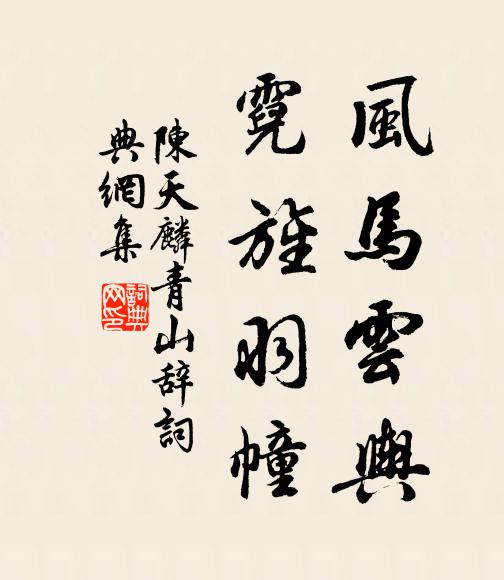 風馬雲輿
霓旌羽幢
陳天麟青山辞詞
典網集
詞典網印